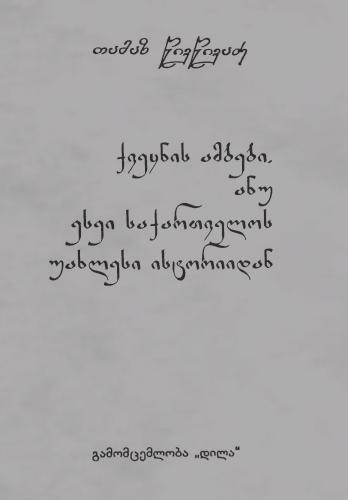 თამაზ წივწივაძე
ქვეყნის ამბები,
ანუ
ესეი საქართველოს
უახლესი ისტორიიდან
გამომცემლობა „დილა“